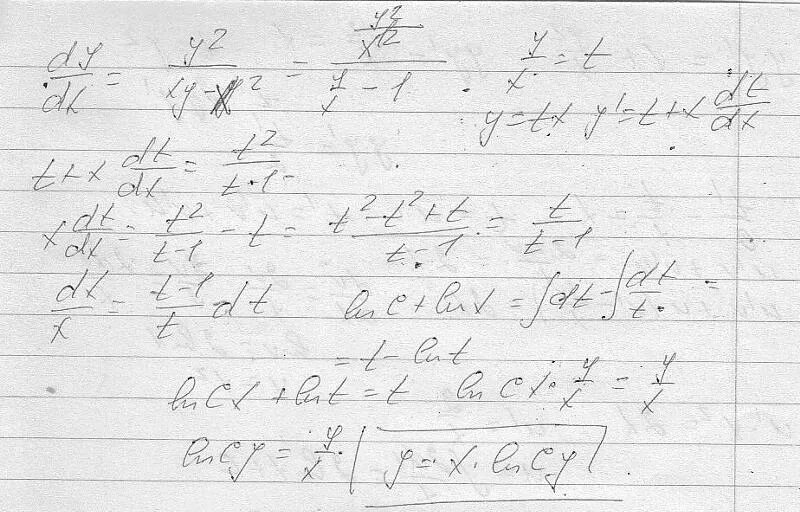 dy/dx = y²/(xy - x²) = (y²/x²)/(y/x - 1) y/x = t
y = tx y' = t + x dt/dx
t + x dt/dx = t²/(t-1)
x dt/dx = t²/(t-1) - t = (t² - t² + t)/(t-1) = t/(t-1)
dx/x = (t-1)/t dt ln C + ln x = ∫dt - ∫dt/t =
= t - ln t
ln Cx + ln t = t ln Cx · y/x = y/x
ln Cy = y/x y = x · ln Cy